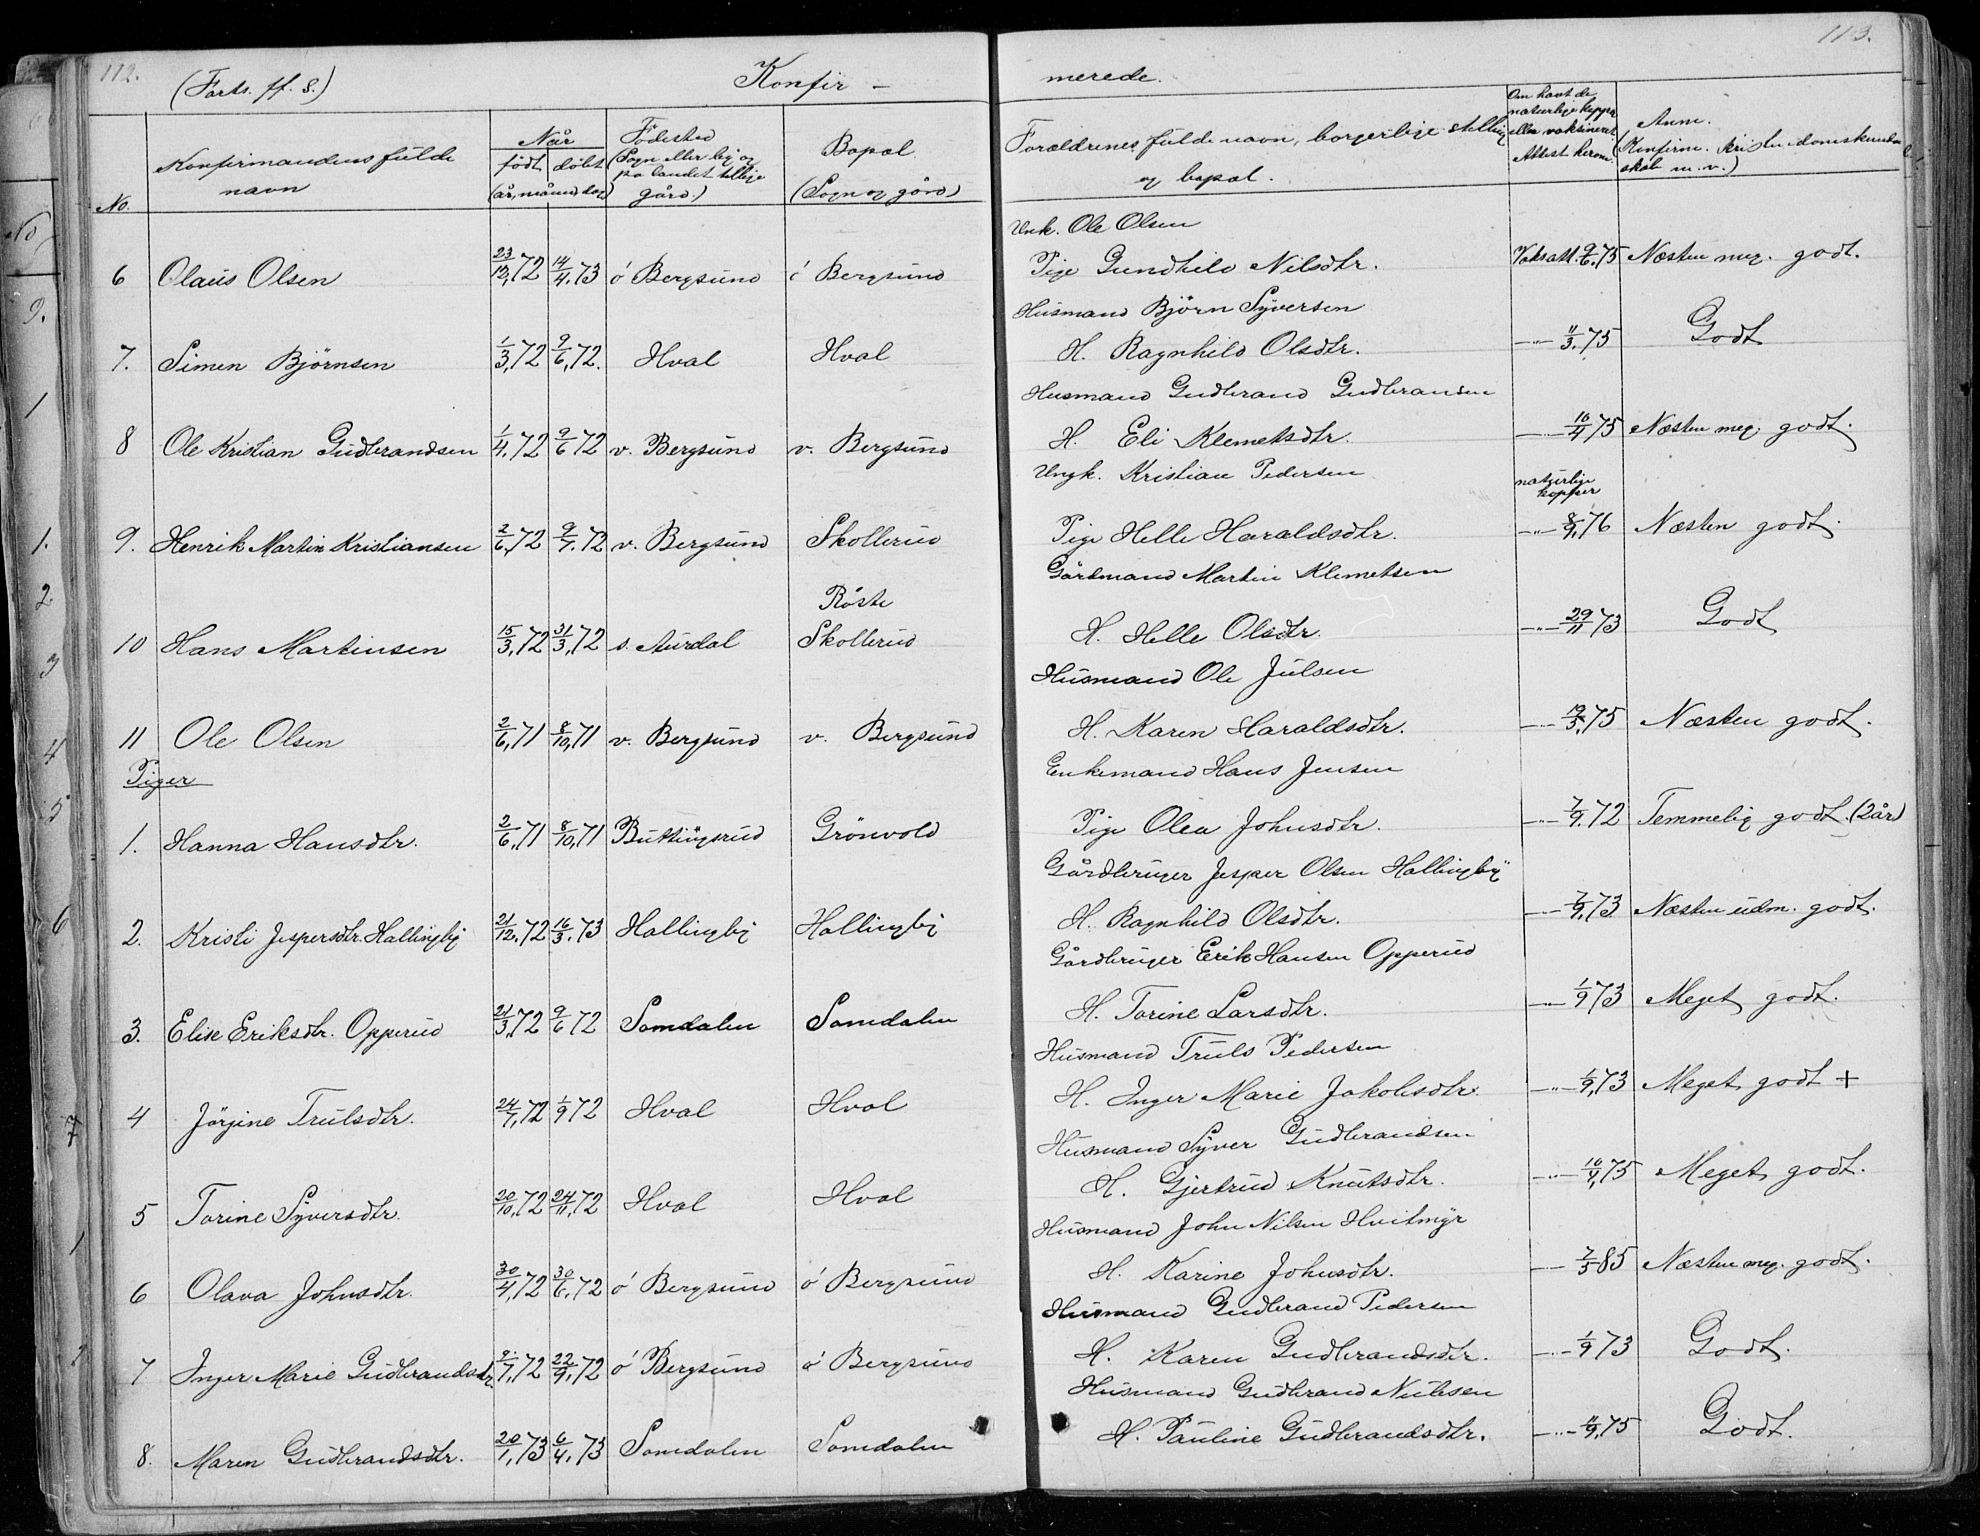 112.
113.
(Forts. ff. S.) Konfir - merede.
No.
Konfirmandens fulde navn
Når
født døbt
(år, måned, dag)
Födested
(Sogn eller by og
på landet tillige
gård.)
Bopæl.
(Sogn og gård)
Forældrenes fulde navn, borgerlige stilling
og bopæl.
Om havt de
naturlige kopper
eller vaksineret.
Attest herom.
Anm.
(Konfirm. kristendomskund-
skab m.v.)
Unk. Ole Olsen
6 Olaus Olsen 23/12,72 14/4,73 ö Bergsund ö Bergsund Pige Gundhild Nilsdtr. Vaksatt. 9/6,75 Næsten meg. godt.
Husmand Björn Syversen
7. Simen Björnsen 1/3,72 9/6,72. Hval Hval H. Ragnhild Olsdtr. —"— 11/3,75 Godt
Husmand Gudbrand Gudbransen
8 Ole Kristian Gudbrandsen 1/4,72 9/6 72 v. Bergsund v. Bergsund H. Eli Klemetsdtr. —"— 10/4 75 Næsten meg. godt.
Ungk. Kristian Pedersen naturlige kopper
9. Henrik Martin Kristiansen 2/6,72 9/7,72 v. Bergsund Skollerud Pige Helle Haraldsdtr. —"— 8/9,76 Næsten godt.
Gårdmand Martin Klemetsen
Röste
10 Hans Martinsen 15/3,72 31/3,72 s. Aurdal Skollerud H. Helle Olsdtr. —"— 29/11 73 Godt
Husmand Ole Julsen
11 Ole Olsen 2/6,71 8/10,71 v. Bergsund v. Bergsund H. Karen Haraldsdtr. —"— 12/5,75 Næsten godt.
Piger
Enkemand Hans Jensen
1. Hanna Hansdtr. 2/6,71 8/10,71 Buttingsrud Grönvold Pige Olea Johnsdtr. —"— 7/9,72 Temmelig godt. (2år)
Gårdbruger Jesper Olsen Hallingby
2. Kristi Jespersdtr. Hallingby 21/12,72 16/3,73 Hallingby Hallingby H. Ragnhild Olsdtr. —"— 7/9,73 Næsten udm. godt.
Gårdbruger Erik Hansen Opperud
3. Elise Eriksdtr. Opperud 21/3,72 9/6 72 Somdalen Somdalen H. Torine Larsdtr. —"— 1/9 73 Meget godt.
Husmand Truls Pedersen
4 Jörgine Trulsdtr. 24/7,72 1/9 72 Hval Hval H. Inger Marie Jakobsdtr. —"— 1/9,73 Meget godt +
Husmand Syver Gudbrandsen
5 Torine Syversdtr. 20/10,72 24/11,72 Hval Hval H. Gjertrud Knutsdtr. —"— 10/4,75 Meget godt.
Husmand John Nilsen Hvitmyr
6 Olava Johnsdtr. 30/4,72 30/6,72 ö Bergsund ö Bergsund H. Karine Johnsdtr. —"— 7/5 85 Næsten meg. godt.
Husmand Gudbrand Pedersen
7 Inger Marie Gudbrandsdtr. /7,72 22/9,72 ö Bergsund ö Bergsund H. Karen Gudbrandsdtr. —"— 1/9 73 Godt.
Husmand Gudbrand Nielsen
8. Maren Gudbrandsdtr. 20/1,73 6/4,73 Somdalen Somdalen H. Pauline Gudbrandsdtr. —"— /9,75 Godt.